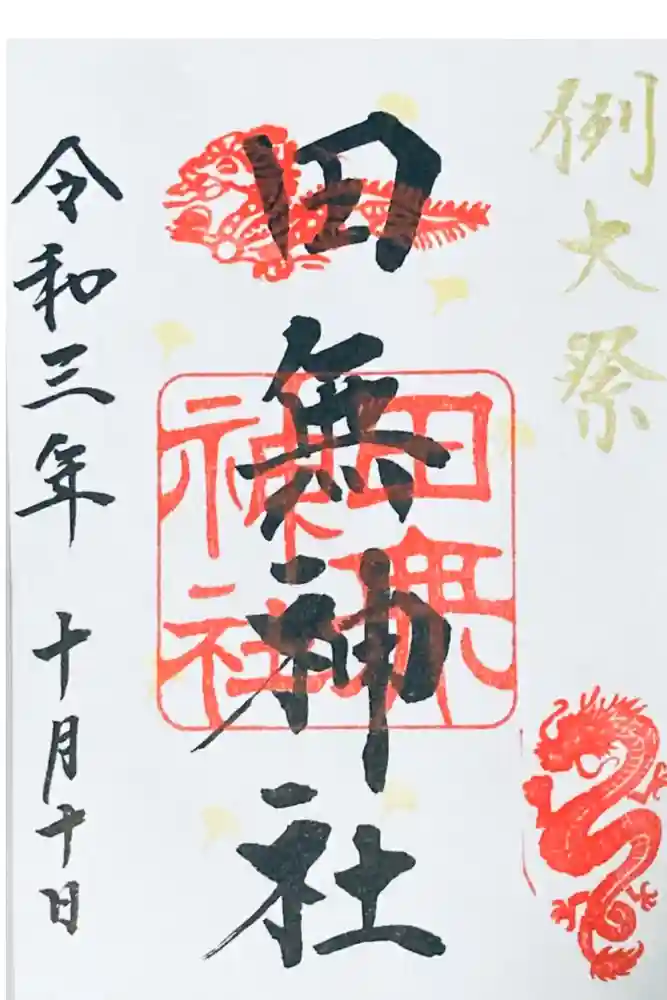 例大祭
田無神社
田無神社
令和三年 十月十日